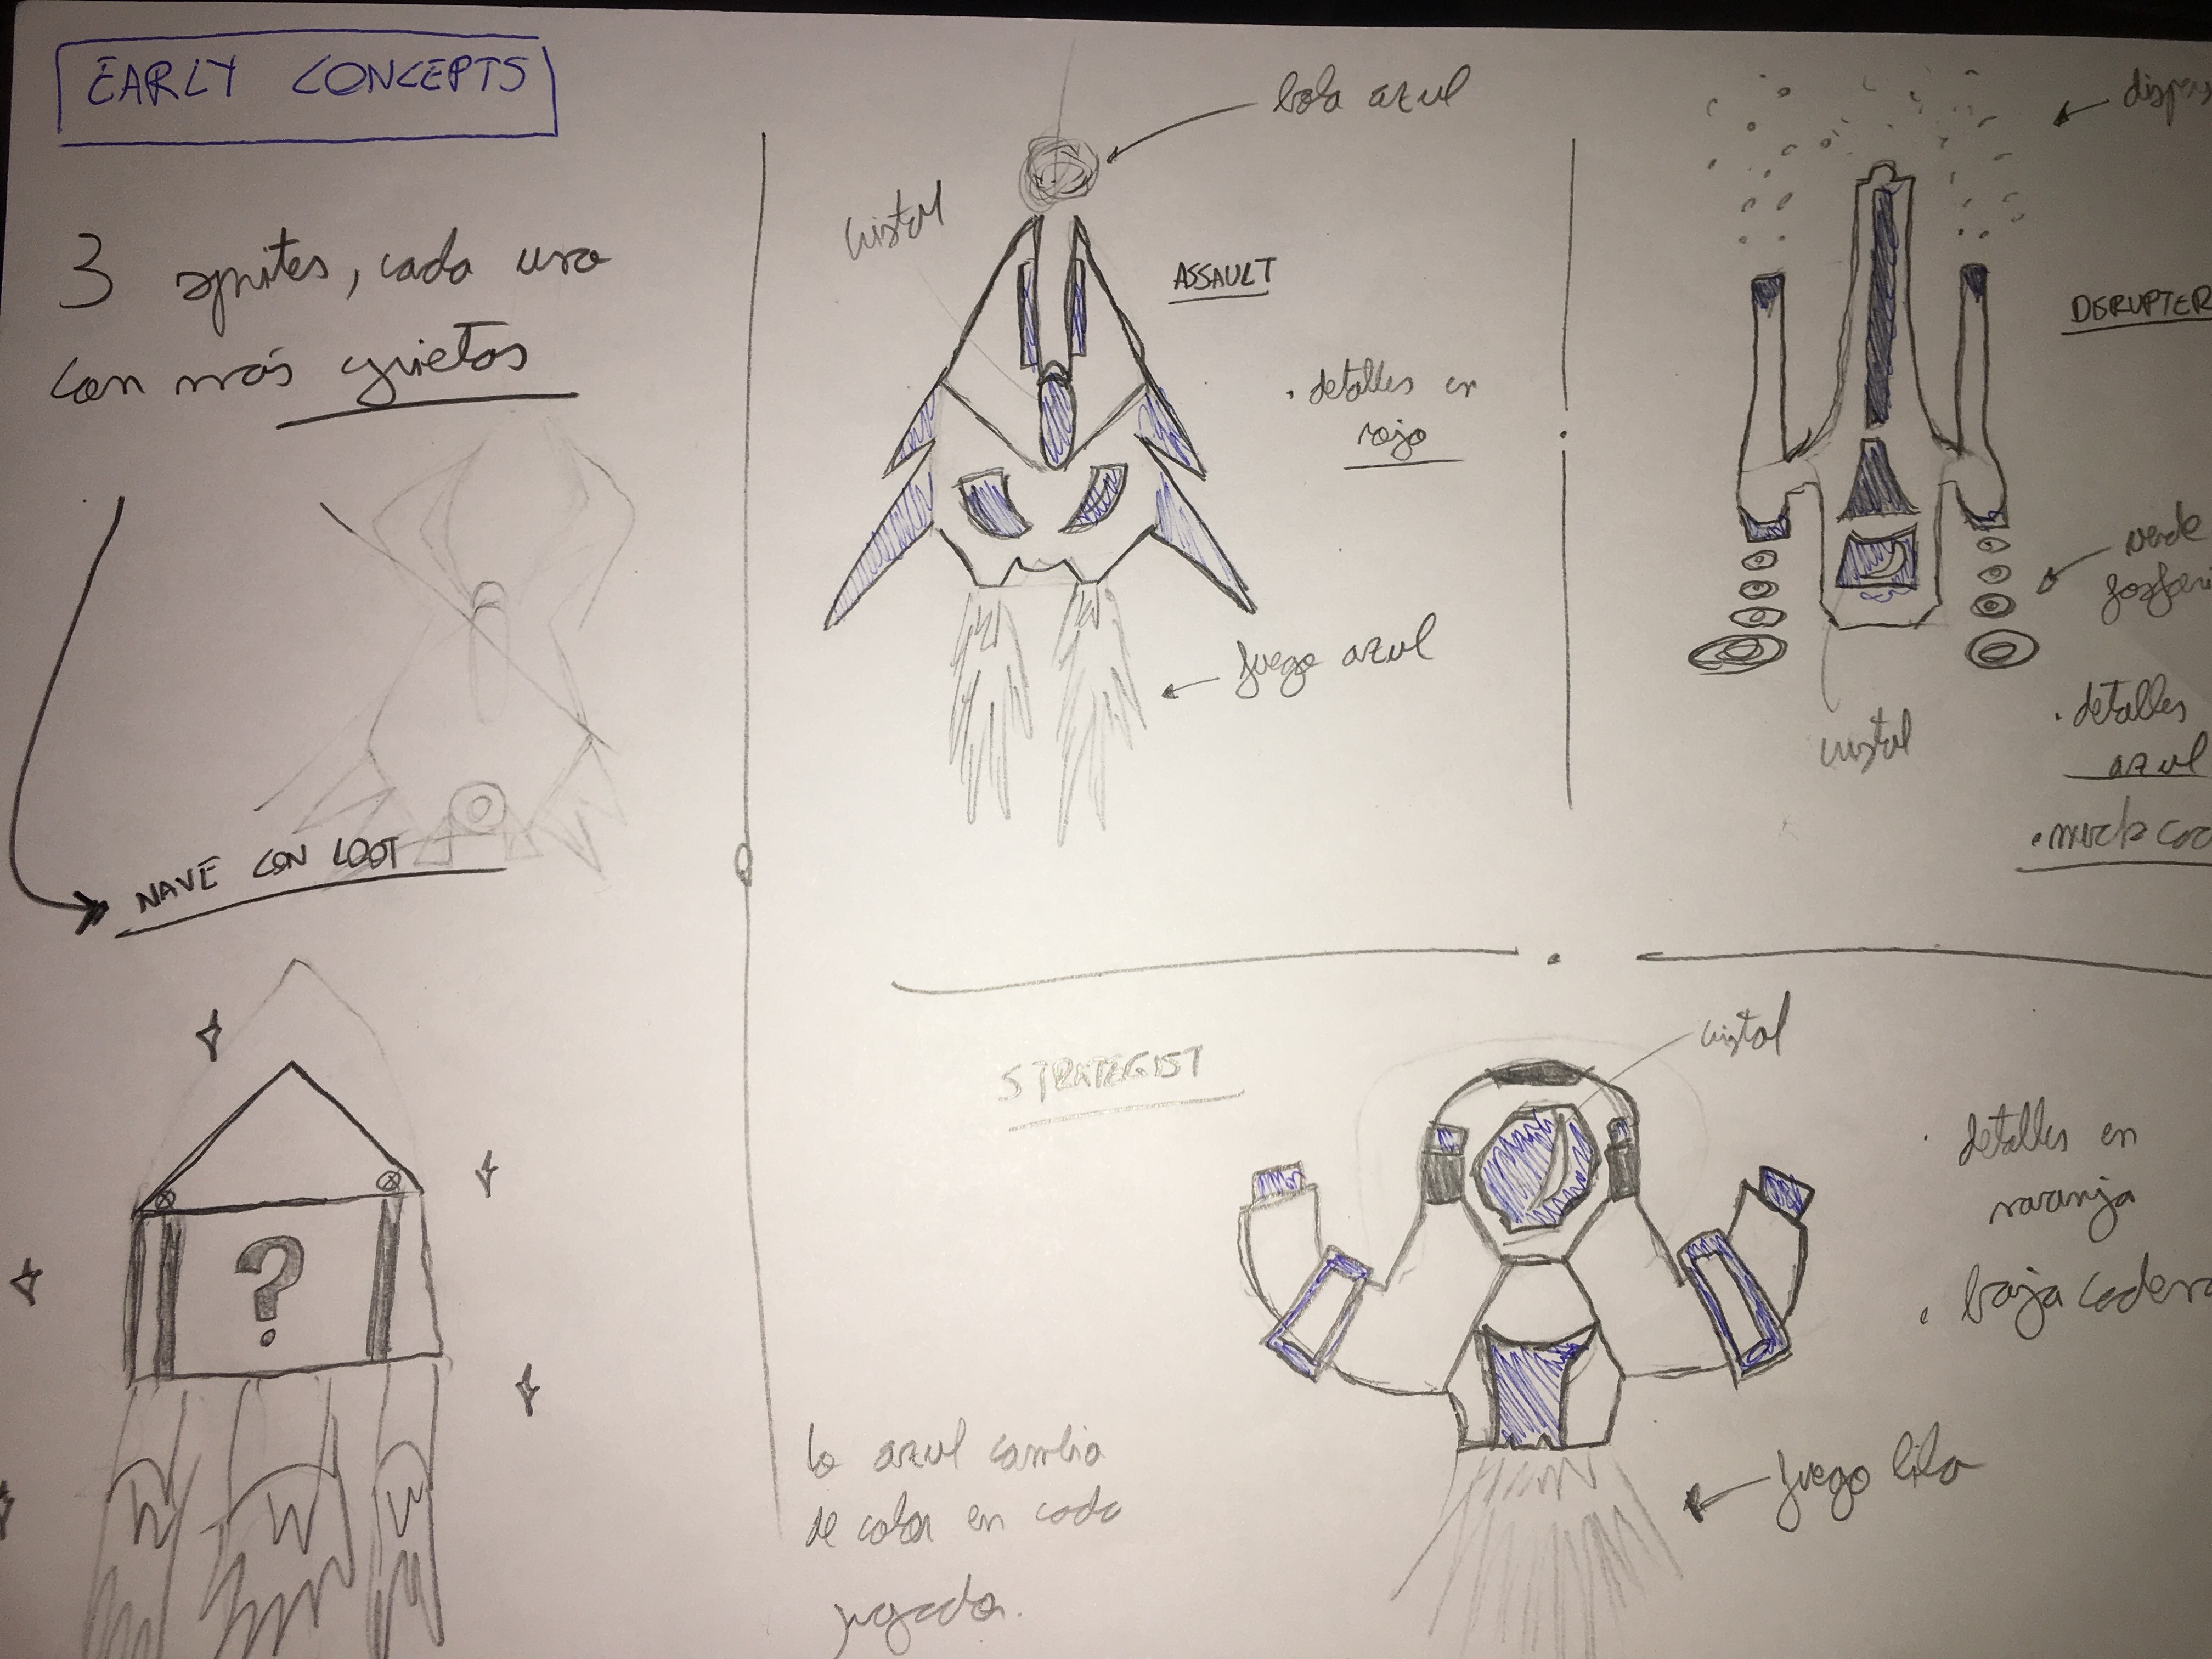 EARLY CONCEPTS
3 sprites, cada uno
con más grietas
NAVE CON LOOT
?
bola azul
cristal
ASSAULT
. detalles en
rojo
fuego azul
DISRUPTER
verde
cristal
. detalles
azul
STRATEGIST
cristal
. detalles en
naranja
. baja
fuego lila
lo azul cambia
de color en cada
jugador.